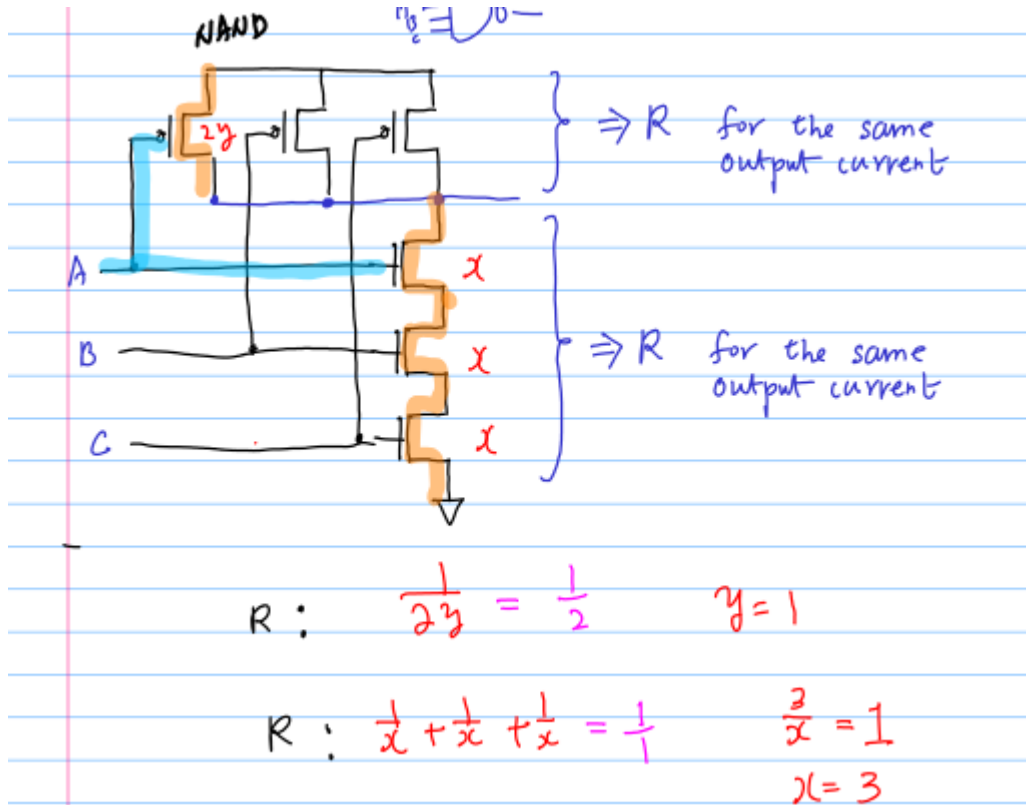 NAND
2y
⇒ R for the same
output current
A
x
B
x
⇒ R for the same
output current
C
x
R : 1/2y = 1/2 y = 1
R : 1/x + 1/x + 1/x = 1/1 3/x = 1
x = 3